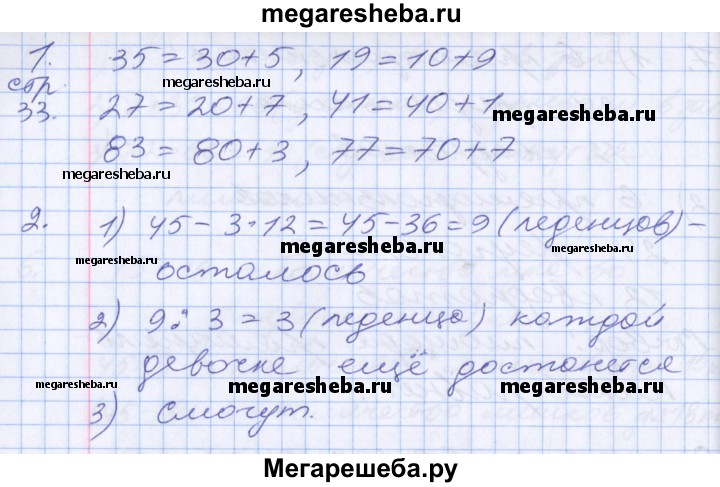 megaresheba.ru
1. 35 = 30+5, 19 = 10+9
стр. megaresheba.ru megaresheba.ru
33. 27 = 20+7, 41 = 40+1 megaresheba.ru
83 = 80+3, 77 = 70+7
megaresheba.ru
2. 1) 45 - 3·12 = 45-36 = 9 (леденцов) -
megaresheba.ru megaresheba.ru megaresheba.ru
осталось
2) 9 : 3 = 3 (леденца) каждой
девочке ещё достанется
megaresheba.ru megaresheba.ru megaresheba.ru
3) Смогут.
Мегарешеба.ру